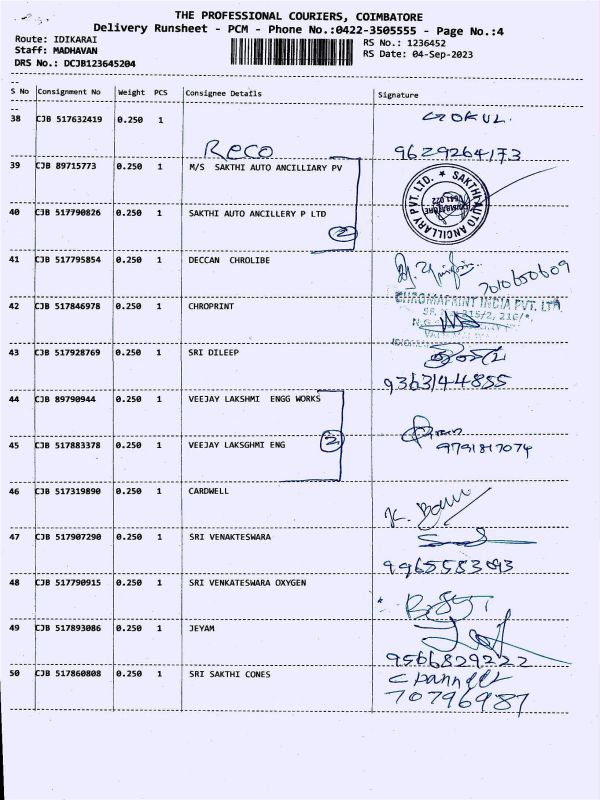 THE PROFESSIONAL COURIERS, COIMBATORE
Delivery Runsheet - PCM - Phone No.:0422-3505555 - Page No.:4
Route: IDIKARAI RS No.: 1236452
Staff: MADHAVAN RS Date: 04-Sep-2023
DRS No.: DCJB123645204
S No Consignment No Weight PCS Consignee Details Signature
38 CJB 517632419 0.250 1 GOKUL.
Reco 9629264173
39 CJB 89715773 0.250 1 M/S SAKTHI AUTO ANCILLIARY PV
SAKTHI AUTO ANCILLARY PVT. LTD. ★
40 CJB 517790826 0.250 1 SAKTHI AUTO ANCILLERY P LTD
2
41 CJB 517795854 0.250 1 DECCAN CHROLIBE
7010650609
42 CJB 517846978 0.250 1 CHROPRINT
CHROMAPRINT INDIA PVT. LTD.
43 CJB 517928769 0.250 1 SRI DILEEP
9363144855
44 CJB 89790944 0.250 1 VEEJAY LAKSHMI ENGG WORKS
45 CJB 517883378 0.250 1 VEEJAY LAKSGHMI ENG 2
9791817074
46 CJB 517319890 0.250 1 CARDWELL
47 CJB 517907290 0.250 1 SRI VENAKTESWARA
9965583093
48 CJB 517790915 0.250 1 SRI VENKATESWARA OXYGEN
49 CJB 517893086 0.250 1 JEYAM
9566829222
50 CJB 517860808 0.250 1 SRI SAKTHI CONES
70796987